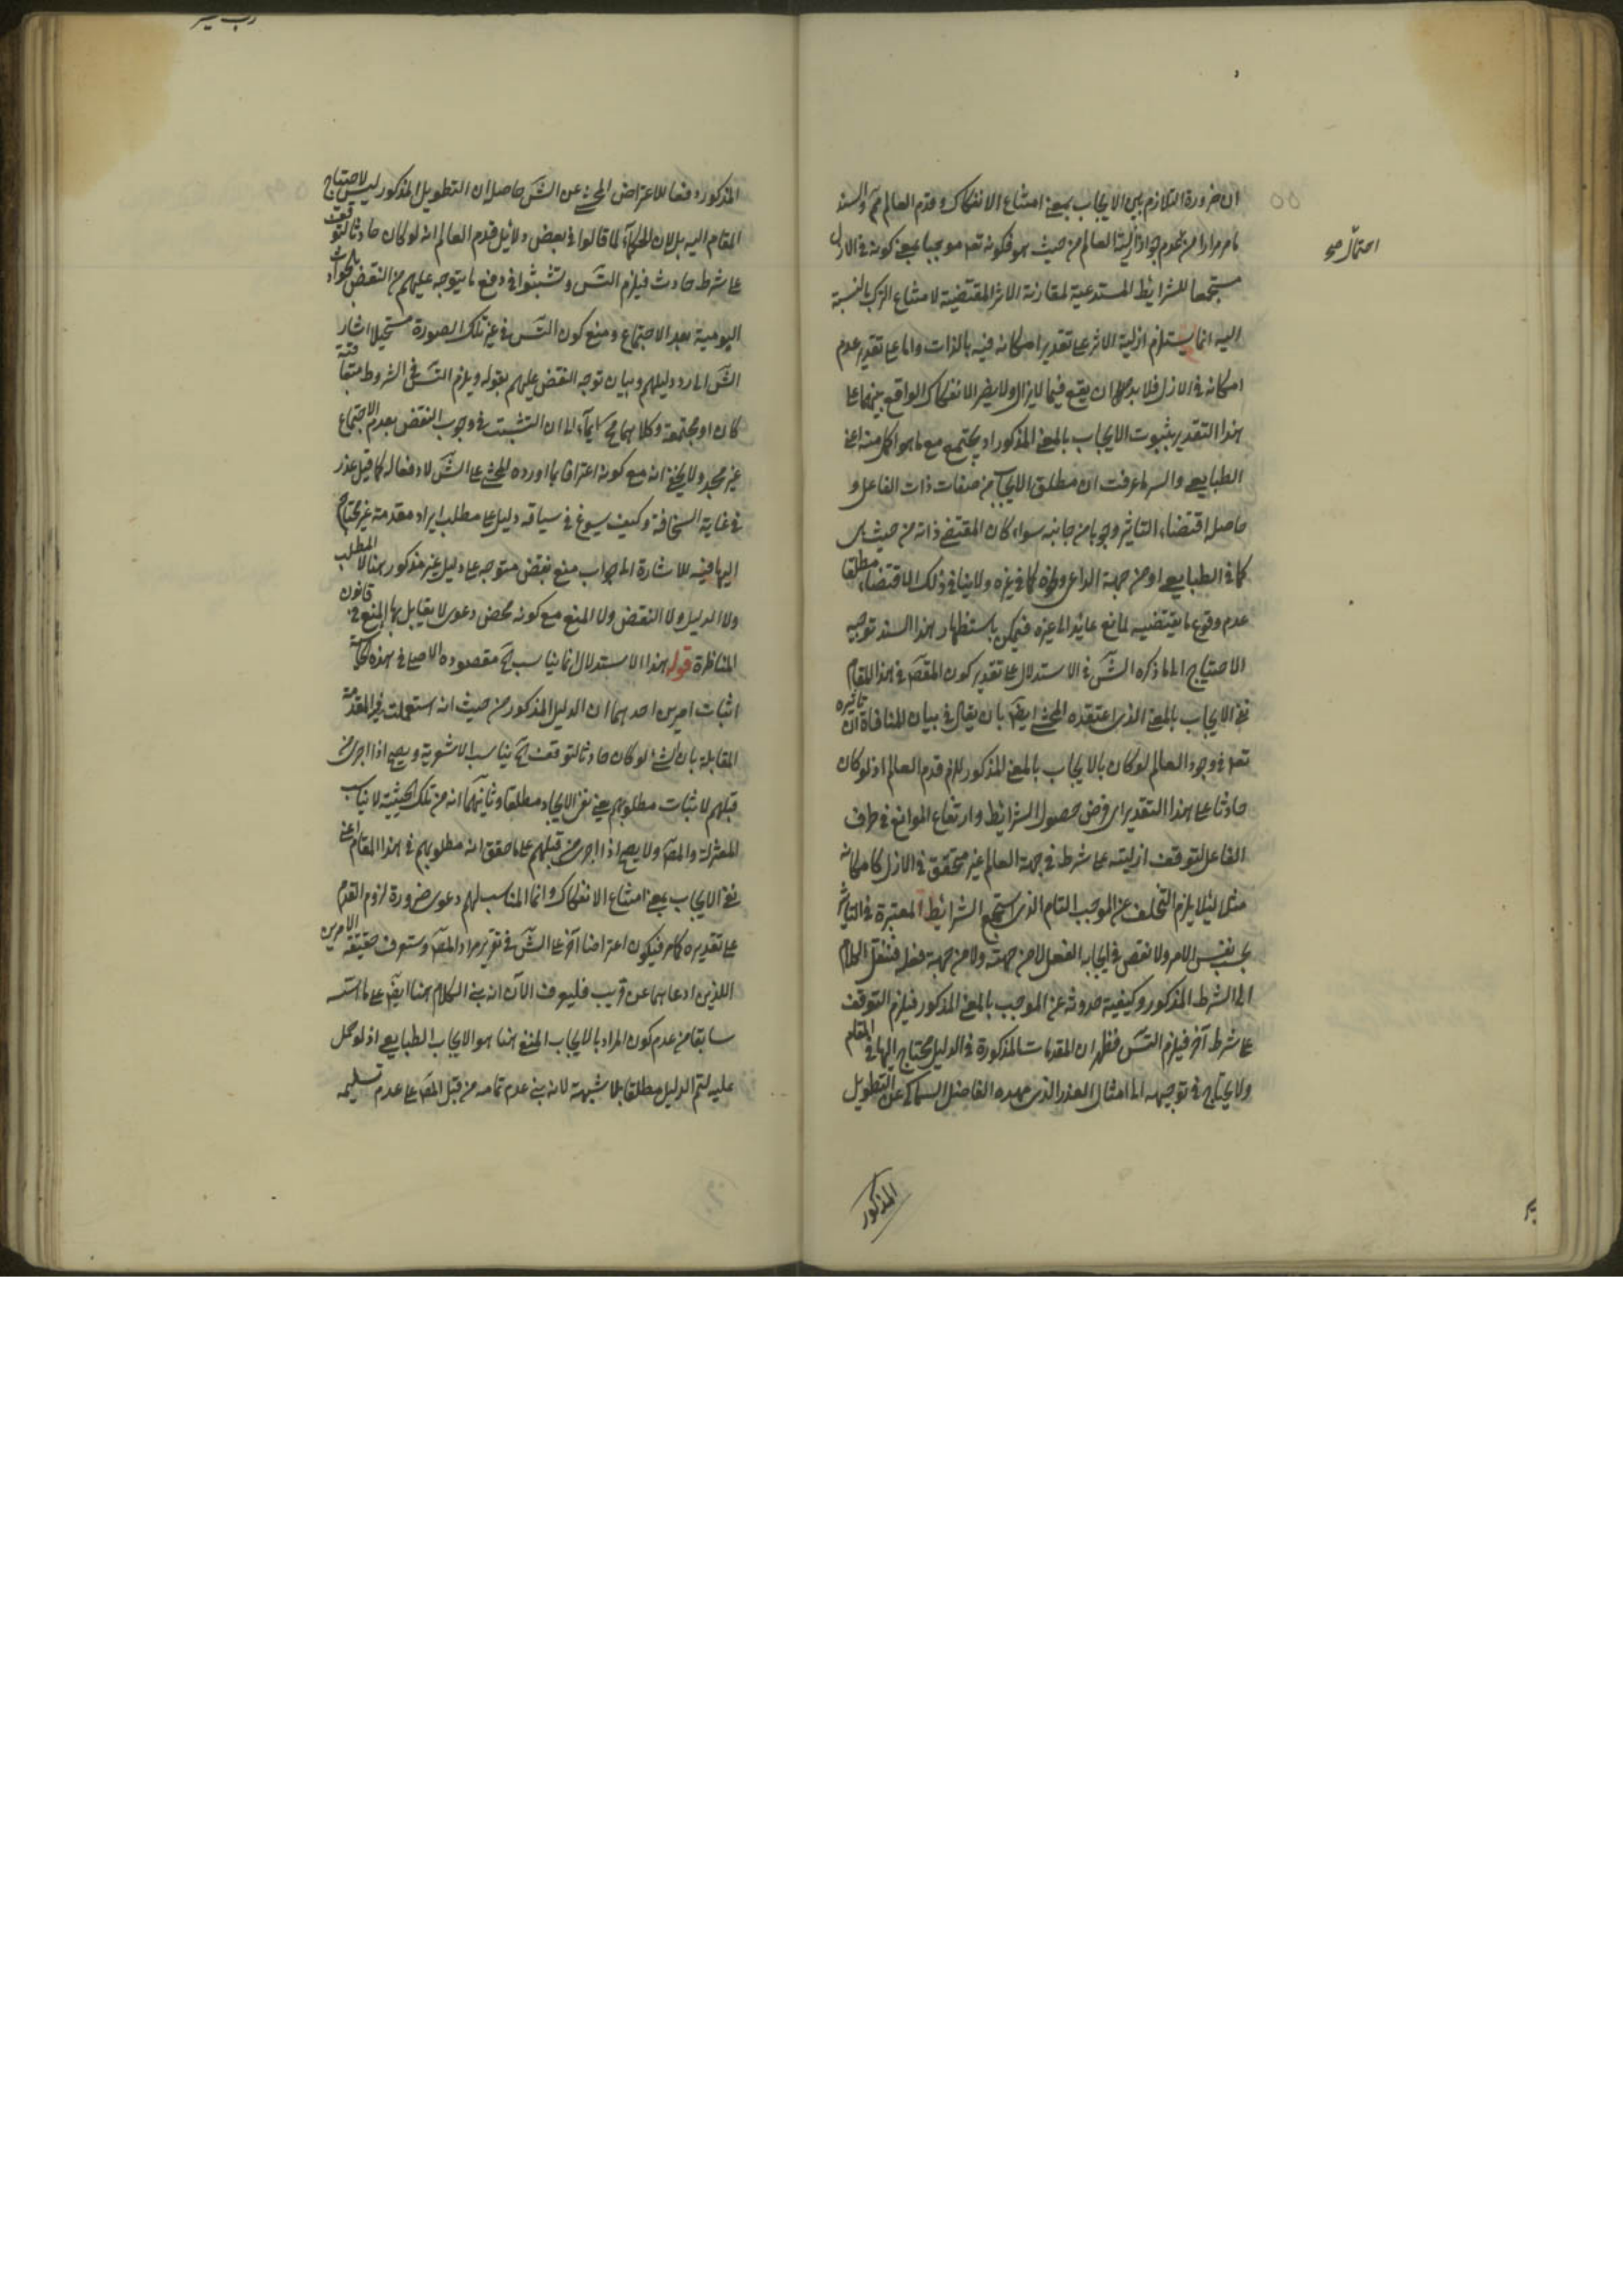 ان ضرورة التلازم بين الايجاب بمعنى امتناع الانفكاك وقدم العالم مم والسند
ما مر مرارا من عدم جواز ازلية العالم من حيث هو فكونه تعه موجبا بمعنى كونه في الازل
احتمال صح
مستجمعا للشرايط المستدعية لمقارنة الاثر المقتضية لامتناع الترك بالنسبة
اليه انما يستلزم ازلية الاثر على تقدير امكانه فيه بالذات واما على تقدير عدم
امكانه في الازل فلا بد ان يقع فيما لا يزال ولا يضر الانفكاك الواقع بينهما على
هذا التقدير بثبوت الايجاب بالمعنى المذكور اذ يجتمع مع ما هو اكمل منه اعنى
الطبايعي والسر ما عرفت ان مطلق الايجاب من صفات ذات الفاعل و
حاصل اقتضاء التاثير وجوبا من جانبه سواء كان المقتضى ذاته من حيث هى
كما في الطبايعي او من جهة الداعى ونحوه كما في غيره ولا ينافى ذلك الاقتضاء مطلقا
عدم وقوع ما يقتضيه لمانع عايد الى غيره فيمكن باستظهار هذا السند توجيه
الاحتياج الى ما ذكره الش في الاستدلال على تقدير كون المقص في هذا المقام
نفى الايجاب بالمعنى الذى اعتقده المحشى ايض بان يقال في بيان المنافاة ان تاثيره
تعه في وجود العالم لو كان بالايجاب بالمعنى المذكور للزم قدم العالم اذ لو كان
حادثا على هذا التقدير اى فرض حصول الشرايط وارتفاع الموانع في طرف
الفاعل لتوقف ازليته على شرط في جهة العالم غير متحقق في الازل كامكانه
مثلا لئلا يلزم التخلف عن الموجب التام الذى استجمع الشرايط المعتبرة في التاثير
بحسب نفس الامر ولا نقص في ايجابه الفعل لا من جهته ولا من جهة فعله فننقل الكلام
الى الشرط المذكور وكيفية حدوثه عن الموجب بالمعنى المذكور فيلزم التوقف
على شرط آخر فيلزم التس فظهر ان المقدمات المذكورة في الدليل محتاج اليها في المقام
ولا يحتاج في توجيهه الى امثال العذر الذى مهده الفاضل السماكى عن التطويل
المذكور
المذكور دفعا للاعتراض المحشى عن الش حاصله ان التطويل المذكور ليس لاحتياج
المقام اليه بل لان الحكماء لما قالوا في بعض دلائل قدم العالم انه لو كان حادثا لتوقف
على شرط حادث فيلزم التس وتشبثوا في دفع ما يتوجه عليهم من النقض بالحوادث
اليومية بعدم الاجتماع ومنع كون التس في غير تلك الصورة مستحيلا اشار
الش الى رد دليلهم وبيان توجه النقض عليهم بقوله ويلزم التس في الشروط متعاقبة
كان او مجتمعة وكلاهما مح ايماء الى ان التشبث في وجوب النقض بعدم الاجتماع
غير مجد ولا يخفى انه مع كونه اعترافا بما اورده المحشى على الش لا دفعا له كما قيل عذر
في غاية السخافة وكيف يسوغ في سياقه دليل على مطلب ايراد مقدمة غير محتاج
اليها فيه للاشارة الى جواب منع نقض متوجه على دليل غير مذكور هنا لا المطلب
ولا الدليل ولا النقض ولا المنع مع كونه محض دعوى لا يقابل بها المنع في قانون
المناظرة قوله هذا الاستدلال انما يناسب الخ مقصوده الاصلى في هذه الحاشية
اثبات امرين احدهما ان الدليل المذكور من حيث انه استعملت فيه المقدمة
المقابلة بان الشئ لو كان حادثا لتوقف الخ يناسب الاشعرية ويصح اذا اجرى من
قبلهم لاثبات مطلوبهم يعنى نفى الايجاب مطلقا وثانيهما انه من تلك الحيثية لا يناسب
المعتزلة والمص ولا يصح اذا اجرى من قبلهم على ما حقق انه مطلوبهم في هذا المقام اعنى
نفى الايجاب بمعنى امتناع الانفكاك وانما المناسب لهم دعوى ضرورة لزوم القدم
على تقديره كما مر فيكون اعتراضا آخر على الش في تقرير مراد المص وستعرف حقيقة الامرين
اللذين ادعاهما عن قريب فليعرف الآن انه بنى الكلام هنا ايض على ما اسسه
سابقا من عدم كون المراد بالايجاب المنفى هنا هو الايجاب الطبايعي اذ لو حمل
عليه لتم الدليل مطلقا بلا شبهة لانه بنى عدم تمامه من قبل المص على عدم تسليمه